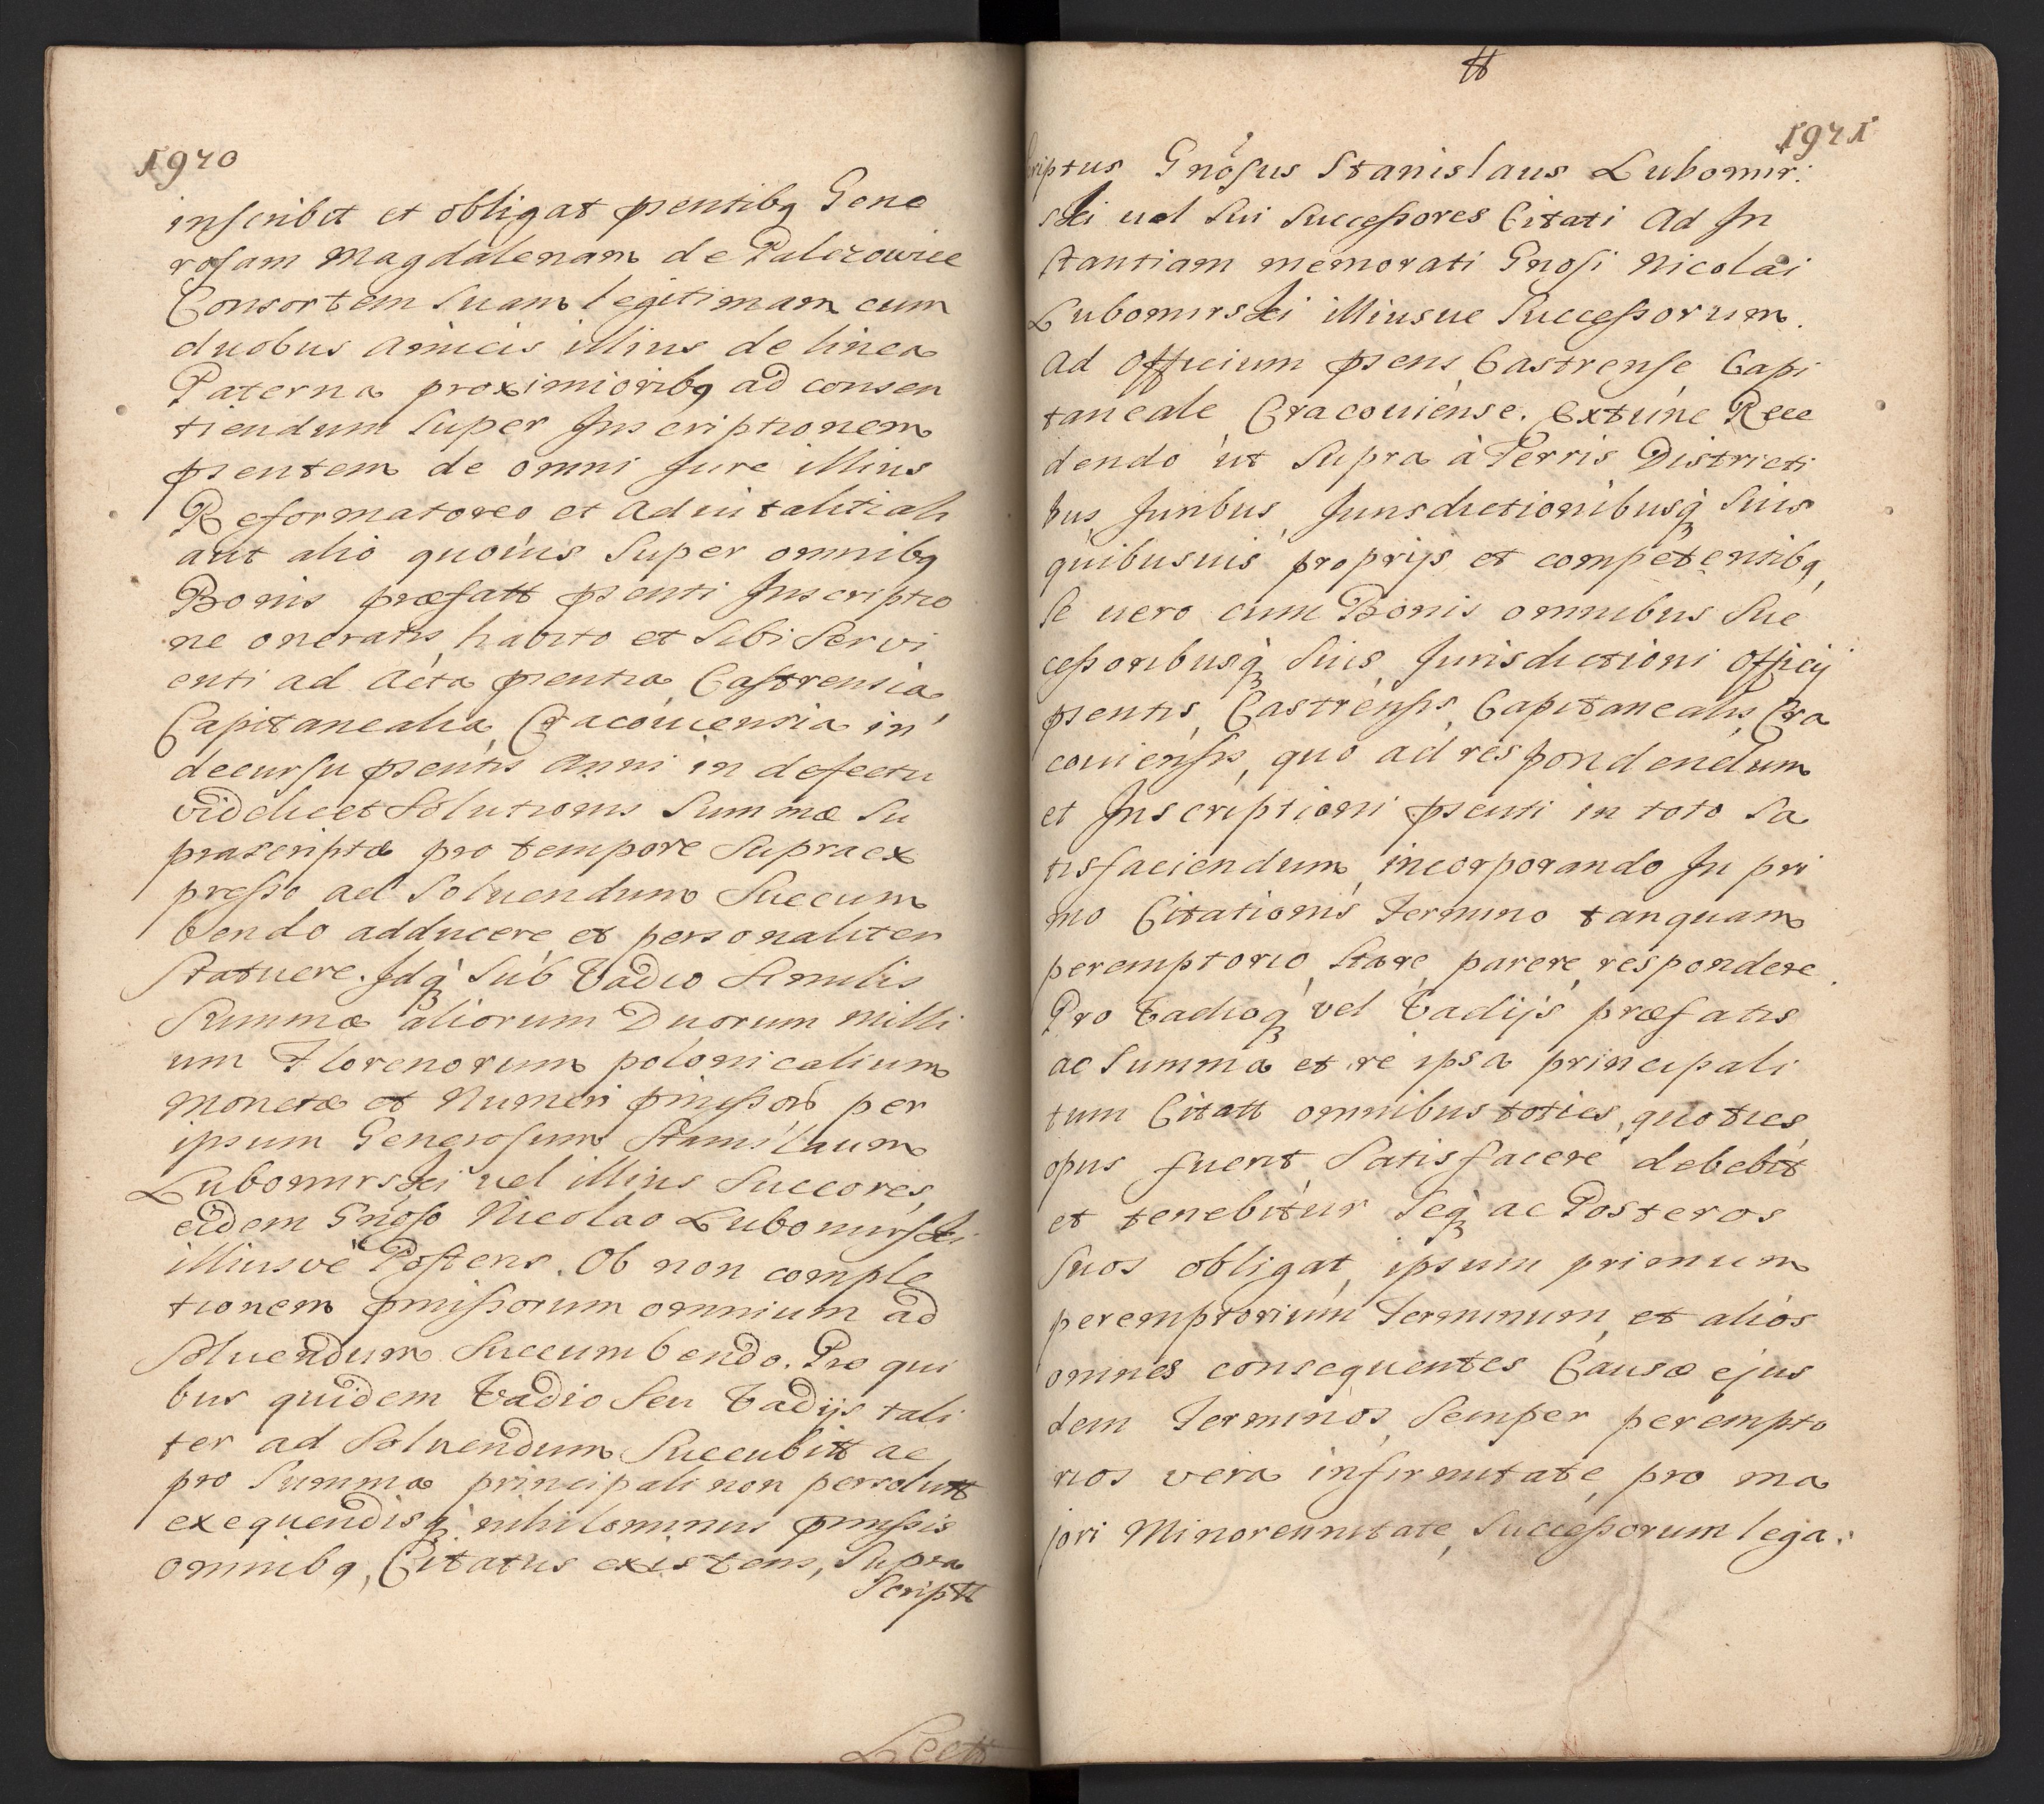 1920
inscribit et obligat pñentibq Gene
rosam Magdalenam de Palczowice
Consortem suam legitimam cum
duobus Amicis illius de linea
Paterna proximioribq ad consen
tiendum super Inscriptionem
pñentem de omni Jure illius
Reformatoreo et aduitalitiali
aut alio quouis super omnibq
Bonis præfatt pñenti Inscriptio
ne oneratis, habito et sibi servi
enti ad Acta pñentia, Castrensia,
Capitanealia, Cracouiensia in
decursu pñentis Anni in defectu
videlicet solutionis Summæ su
prascriptæ pro tempore supraex
presso ad soluendum succum
bendo adducere et personaliter
statuere. Idq sub Vadio similis
Summæ aliorum Duorum Milli
um Florenorum polonicalium
Monetæ et Numeri pmissor per
ipsum Generosum Stanislaum
Lubomirski uel illius Succores,
eidem Gnoso Nicolao Lubomirski
illiusve Posteris. Ob non comple
tionem pmissorum omnium ad
Soluendum Succumbendo. Pro qui
bus quidem Vadio seu Vadijs tali
ter ad soluendum succubitt ac
pro Summa principali non persolutt
exequendisq nihilominus pmissis
omnibq, Citatus existens, Supra
Scriptt
Lectt
tt
1921
scriptus Gnosus Stanislaus Lubomir:
ski uel sui successores Citati Ad In
stantiam memorati Gnosi Nicolai
Lubomirski illiusue successorum.
Ad Officium pñens, Castrense Capi
taneale Cracouiense. Extunc Rece
dendo ut supra à Terris Districti
bus, Juribus, Jurisdictionibusq suis
quibusuis proprijs et competentibq,
se uero cum Bonis omnibus suc
cessoribusq suis, Jurisdictioni Officij
pñentis, Castrensis, Capitanealis, Cra
couiensis, quo ad respondendum
et Inscriptioni pñenti in toto sa
tisfaciendum, incorporando In pri
mo Citationis Termino tanquam
peremptorio, stare, parere, respondere.
Pro Vadioq vel Vadijs præfatis
ac Summa et re ipsa principali
tum Citatt omnibus toties, quoties
opus fuerit satisfacere debebit
et tenebitur seq ac Posteros
suos obligat, ipsum primum
peremptorium Terminum, et alios
omnes consequentes Causæ ejus
dem Terminos, semper perempto
rios vera infirmitate, pro ma
jori Minorennitate, successorum lega: